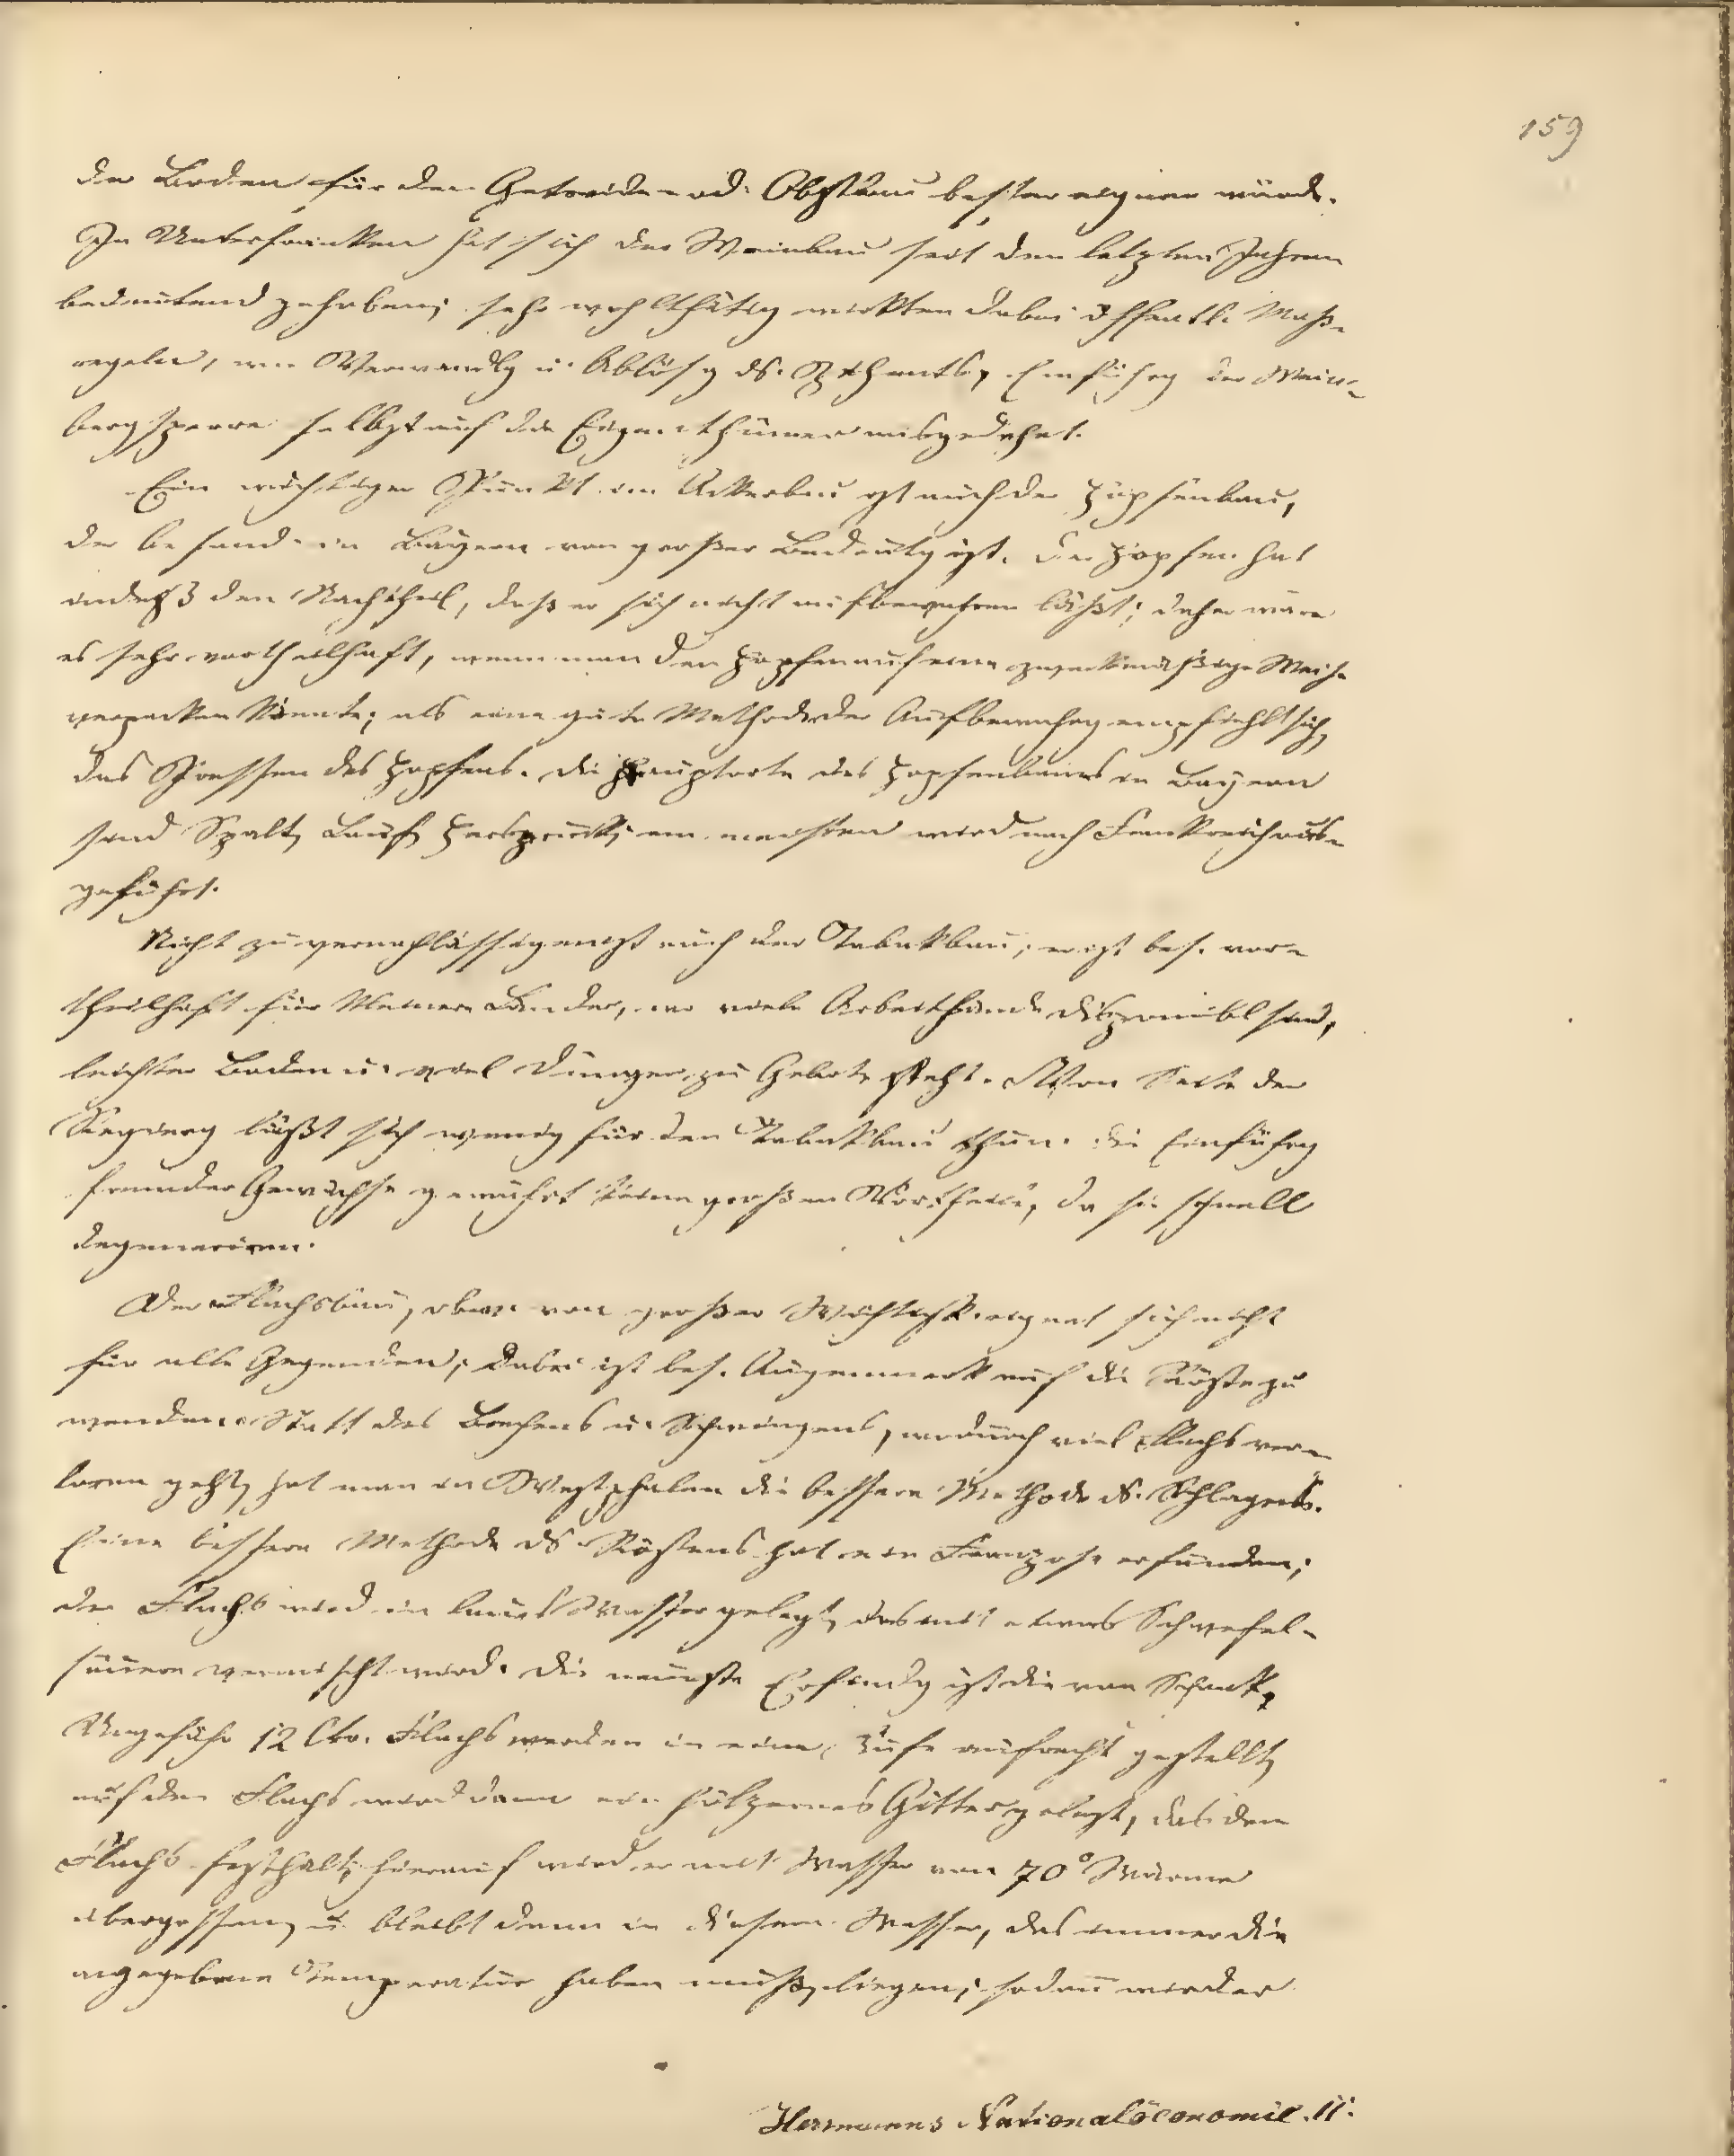 159
der Boden für den Getreide- od. Obstbau besser eignen würde.
In Unterfranken hat sich der Weinbau seit den letzten Jahren
bedeutend gehoben; sehr wohlthätig wirkten dabei öffentl. Maß-
regeln, wie Verwandlg u. Ablösg ds. Zehents, Einführg der Wein-
bergsperre selbst auf den Eigenthümer ausgedehnt.
Ein wichtiger Punkt im Ackerbau ist auch der Hopfenbau,
der besond. in Bayern von großer Bedeutg ist. Der Hopfen hat
indeß den Nachtheil, daß er sich nicht aufbewahren läßt; daher wäre
es sehr vortheilhaft, wenn man den Hopfen auf eine zweckmäßige Weise
verpacken könnte; als eine gute Methode der Aufbewahrg empfiehlt sich
das Pressen des Hopfens. Die Hauptorte des Hopfenbaues in Bayern
sind Spalt, Lauf, Hersbruck; am meisten wird nach Frankreich aus-
geführt.
Nicht zu vernachlässigen ist auch der Tabakbau; er ist bes. vor-
theilhaft für kleinere Länder, wo viele Arbeithände disponibl sind,
leichter Boden u. viel Dünger zu Gebote steht. Von Seite der
Regierg läßt sich wenig für den Tabakbau thun. Die Einführg
fremder Gewächse gewährt keine großen Vortheile, da sie schnell
degeneriren.
Der Flachsbau, eben von großer Wichtigk. eignet sich nicht
für alle Gegenden; dabei ist bes. Augenmerk auf die Röste zu
wenden. Statt des Brechens u. Schwingens, wodurch viel Flachs ver-
loren geht, hat man in Westphalen die bessere Methode ds. Schlagens.
Eine bessere Methode ds. Röstens hat ein Franzose erfunden;
der Flachs wird in laues Wasser gelegt, das mit etwas Schwefel-
säure vermischt wird. Die neueste Erfindg ist die von Schenk,
Ungefähr 12 Ctr. Flachs werden in eine Kufe aufrecht gestellt,
auf den Flachs wird dann ein hölzernes Gitter gelegt, das den
Flachs festhält; hierauf wird er mit Wasser von 70° Wärme
übergossen, u. bleibt dann in diesem Wasser, das immer die
angegebene Temperatur haben muß, liegen; sodann wird er
Herrmanns Nationalöconomie. II.